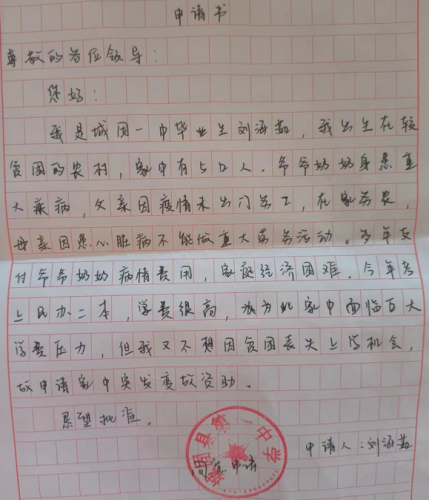 申请书
尊敬的各位领导：
您好：
我是城固一中毕业生刘涵茹，我出生在较
贫困的农村，家中有5口人，爷爷奶奶身患重
大疾病，父亲因疫情未出门务工，在家务农，
母亲因患心脏病不能做重大劳务活动。多年支
付爷爷奶奶病情费用，家庭经济困难，今年考
上民办二本，学费很高，故为此家中面临巨大
学费压力，但我又不想因贫困丧失上学机会，
故申请家中突发变故资助。
恳望批准。
县第一中学
申请
申请人：刘涵茹